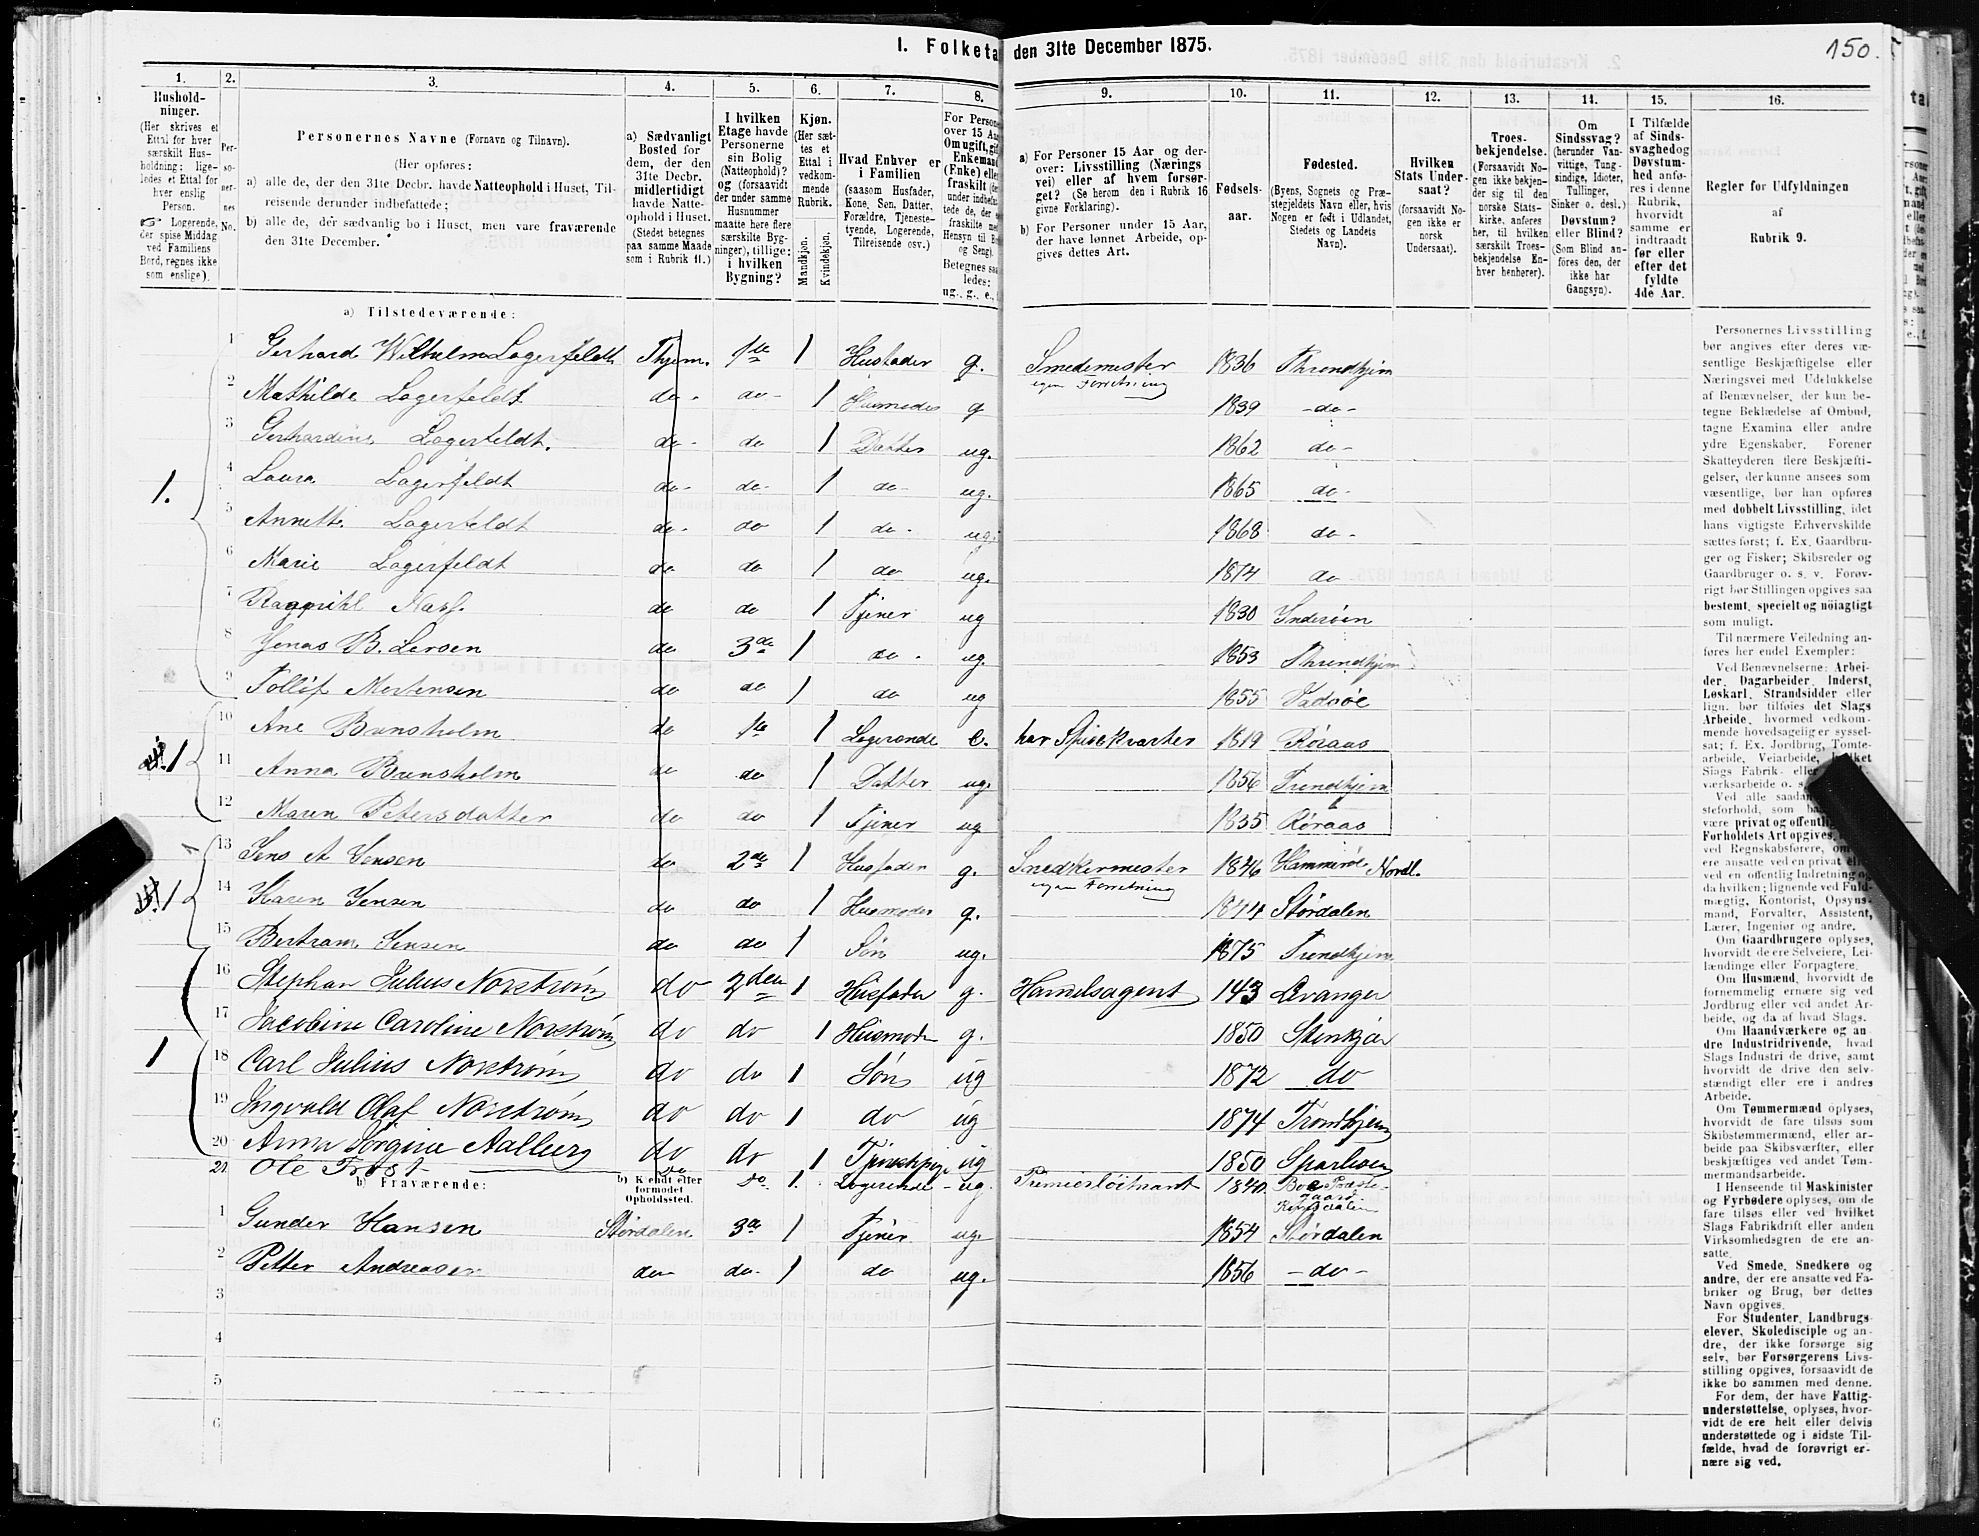 I. Folketa den 31te December 1875.
150.
1. 2. 3. 4. 5. 6. 7. 8. 9. 10. 11. 12. 13. 14. 15. 16.
Hushold-
ninger.
(Her skrives et
Ettal for hver
særskilt Hus-
holdning; lige-
ledes et Ettal for
hver enslig
Person.
☞ Logerende,
der spise Middag
ved Familiens
Bord, regnes ikke
som enslige).
Per-
so-
ner-
nes
No.
Personernes Navne (Fornavn og Tilnavn).
(Her opføres:
a) alle de, der den 31te Decbr. havde Natteophold i Huset, Til-
reisende derunder indbefattede;
b) alle de, der sædvanlig bo i Huset, men vare fraværende
den 31te December.
a) Sædvanligt
Bosted for
dem, der den
31te Decbr.
midlertidigt
havde Natte-
ophold i Huset.
(Stedet betegnes
paa samme Maade
som i Rubrik 11.)
I hvilken
Etage havde
Personerne
sin Bolig
(Natteophold)?
og (forsaavidt
der under samme
Husnummer
maatte høre flere
særskilte Byg-
ninger), tillige:
i hvilken
Bygning?
Kjøn.
(Her sæt-
tes et
Ettal i
vedkom-
mende
Rubrik.
Mandkjøn.
Kvindekjøn.
Hvad Enhver er
i Familien
(saasom Husfader,
Kone, Søn, Datter,
Forældre, Tjeneste-
tyende, Logerende,
Tilreisende osv.)
For Persone
over 15 Aa
Om ugift, gif
Enkeman
(Enke) elle
fraskilt (de
under indbefa
tede de, der
fraskilte me
Hensyn til B
og Seng).
Betegnes saa
ledes:
ug., g., e.,
a) For Personer 15 Aar og der-
over: Livsstilling (Nærings
vei) eller af hvem forsør-
get? (Se herom den i Rubrik 16
givne Forklaring).
b) For Personer under 15 Aar,
der have lønnet Arbeide, op-
gives dettes Art.
Fødsels-
aar.
Fødested.
(Byens, Sognets og Præ-
stegjeldets Navn eller, hvis
Nogen er født i Udlandet,
Stedets og Landets
Navn).
Hvilken
Stats Under-
saat?
(forsaavidt No-
gen ikke er
norsk
Undersaat).
Troes-
bekjendelse.
(Forsaavidt No-
gen ikke bekjen-
der sig til den
norske Stats-
kirke, anføres
her, til hvilken
særskilt Troes-
bekjendelse En-
hver henhører).
Om
Sindssvag?
(herunder Van-
vittige, Tung-
sindige, Idioter,
Tullinger,
Sinker o. desl.)
Døvstum?
eller Blind?
(Som Blind an-
føres den, der
ikke har
Gangsyn).
I Tilfælde
af Sinds-
svaghed og
Døvstum-
hed anfø-
res i denne
Rubrik,
hvorvidt
samme er
indtraadt
før eller
efter det
fyldte
4de Aar.
Regler for Udfyldningen
af
Rubrik 9.
a) Tilstedeværende:
1 Gerhard Wilhelm Lagerfeldt Thjem. 1te 1 Husfader g. Smedemester egen Forretning 1836 Throndhjem
2 Mathilde Lagerfeldt do - do - 1 Husmoder g 1839 - do -
3 Gerhardine Lagerfeldt. do - do 1 Datter ug. 1862 do -
1.
4 Laura Lagerfeldt do - do - 1 do - ug. 1865 do -
5 Annette Lagerfeldt do - do 1 do - ug. 1868 do -
6 Marie Lagerfeldt do do 1 do ug. 1874 do
7 do do 1 Tjener ug 1830 Inderøen
8 Jonas B. Larsen do 3de 1 do - ug. 1853 Throndhjem
9 Tollef Mortensen do do 1 do ug 1855 Vadsøe
10 Ane Bunsholm do 1te 1 Logerende e. har Spisekvarter 1819 Røraas
1
11 Anna Bunsholm do do 1 Datter ug. 1856 Trondhjem
12 Maren Petersdatter do do 1 Tjener ug 1835 Røraas
13 Jens A Jensen do 2de 1 Husfader g. Snedkermester egen Forretning 1846 Hammerøe Nordl.
1
14 Karen Jensen do do 1 Husmoder g. 1844 Størdalen
15 Bertram Jensen do do 1 Søn ug. 1875 Trondhjem
16 Stephan Julius Norstrøm do 2den 1 Husfader g. Handelsagent 143 Levanger
17 Jacobine Caroline Norstrøm do do 1 Husmoder g. 1850 Stenkjær
1
18 Carl Julius Norstrøm do do 1 Søn ug 1872 do
19 Ingvald Olaf Norstrøm do do 1 do ug 1874 Trondhjem
20 Anna Sørgine Aalberg do do 1 Tjenestepige ug 1850 Sparboen
21 Ole Trost do do 1. Logerende - ug. Premierløitnant 1840. Boe Præste-
gaard
Romsdalen
b) Fraværende:
b) Kjendt eller
formodet
Opholdssted.
1 Gunder Hansen Størdalen 3de 1 Tjener ug. 1854 Størdalen
2 Petter Andreasen do - do - 1 do ug. 1856 - do -
3
4
5
6
Personernes Livsstilling
bør angives efter deres væ-
sentlige Beskjæftigelse eller
Næringsvei med Udelukkelse
af Benævnelser, der kun be-
tegne Beklædelse af Ombud,
tagne Examina eller andre
ydre Egenskaber. Forener
Skatteyderen flere Beskjæfti-
gelser, der kunne ansees som
væsentlige, bør han opføres
med dobbelt Livsstilling, idet
hans vigtigste Erhvervskilde
sættes først; f. Ex. Gaardbru-
ger og Fisker; Skibsreder og
Gaardbruger o. s. v. Forøv-
rigt bør Stillingen opgives saa
bestemt, specielt og nöiagtigt
som muligt.
Til nærmere Veiledning an-
føres her endel Exempler:
Ved Benævnelserne: Arbei-
der, Dagarbeider, Inderst,
Løskarl, Strandsidder eller
lign. bør tilføies det Slags
Arbeide, hvormed vedkom-
mende hovedsagelig er syssel-
sat; f. Ex. Jordbrug, Tomte-
arbeide, Veiarbeide,
Slags Fabrik- eller
værksarbeide o. s.
Ved alle saadan
steforhold, som
være privat og offentlig
Forholdets Art opgives,
ved Regnskabsførere, om
ere ansatte ved en privat eller
ved en offentlig Indretning og
da hvilken; lignende ved Fuld-
mægtig, Kontorist, Opsyns-
mand, Forvalter, Assistent,
Lærer, Ingeniør og andre.
Om Gaardbrugere oplyses,
hvorvidt de ere Selveiere, Lei-
lændinge eller Forpagtere.
Om Husmænd, hvorvidt de
fornemmelig ernære sig ved
Jordbrug eller ved andet Ar-
beide, og da af hvad Slags.
Om Haandværkere og an-
dre Industridrivende, hvad
Slags Industri de drive, samt
hvorvidt de drive den selv-
stændigt eller ere i andres
Arbeide.
Om Tømmermænd oplyses,
hvorvidt de fare tilsøs som
Skibstømmermænd, eller ar-
beide paa Skibsværfter, eller
beskjæftiges ved andet Tøm-
mermandsarbeide.
I Henseende til Maskinister
og Fyrbødere oplyses, om de
fare tilsøs eller ved hvilket
Slags Fabrikdrift eller anden
Virksomhedsgren de ere an-
satte.
Ved Smede, Snedkere og
andre, der ere ansatte ved Fa-
briker og Brug, bør dettes
Navn opgives.
For Studenter, Landbrugs-
elever, Skoledisciple og an-
dre, der ikke forsørge sig
selv, bør Forsørgerens Livs-
stilling opgives, forsaavidt de
ikke bo sammen med denne.
For dem, der have Fattig-
understøttelse, oplyses, hvor-
vidt de ere helt eller delvis
understøttede og i sidste Til-
fælde, hvad de forøvrigt er-
nære sig ved.